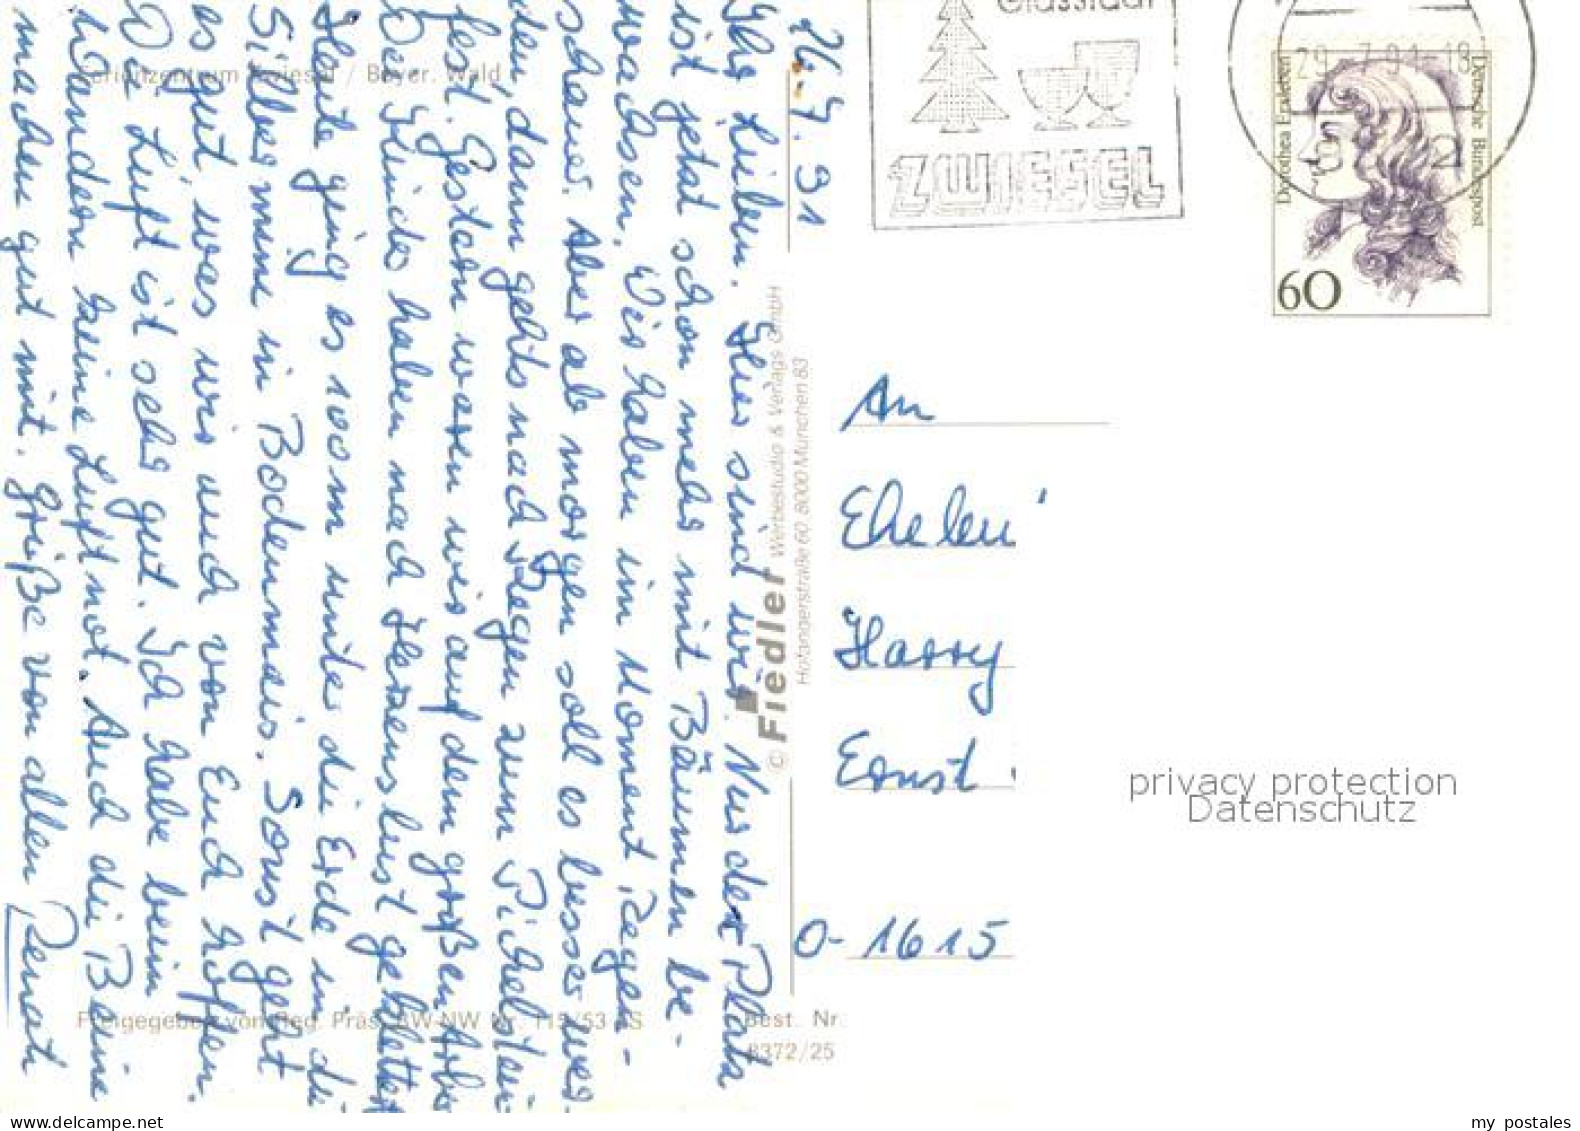 26.7.91
Ihr Lieben. Hier sind wir. Nur der Platz
ist jetzt schon mehr mit Bäumen be-
wachsen. Wir haben im Moment Regen-
schauer. Aber ab morgen soll es besser wer-
den, dann gehts nach Regen zum Pichelstein-
fest. Gestern waren wir auf dem großen Arber
Die Kinder haben nach Herzenslust geklettert
Heute ging es 100m unter die Erde in die
Silbermine in Bodenmais. Sonst geht
es gut, was wir auch von Euch hoffen.
Die Luft ist sehr gut. Ich habe beim
Wandern keine Luftnot. Auch die Beine
machen gut mit. Grüße von allen Renate
Ferienzentrum Zwiesel / Bayer. Wald
Freigegeben von Reg. Präs. BW-NW Nr. 115/53
Best. Nr.
8372/25
© Fiedler Werbestudio & Verlags GmbH
Hofangerstraße 60 8000 München 83
Glasstadt
ZWIESEL
29.-7.91-18
Dorothea Erxleben
Deutsche Bundespost
60
An
Eheleu
Harry
Ernst
O-1615
privacy protection
Datenschutz
my postales